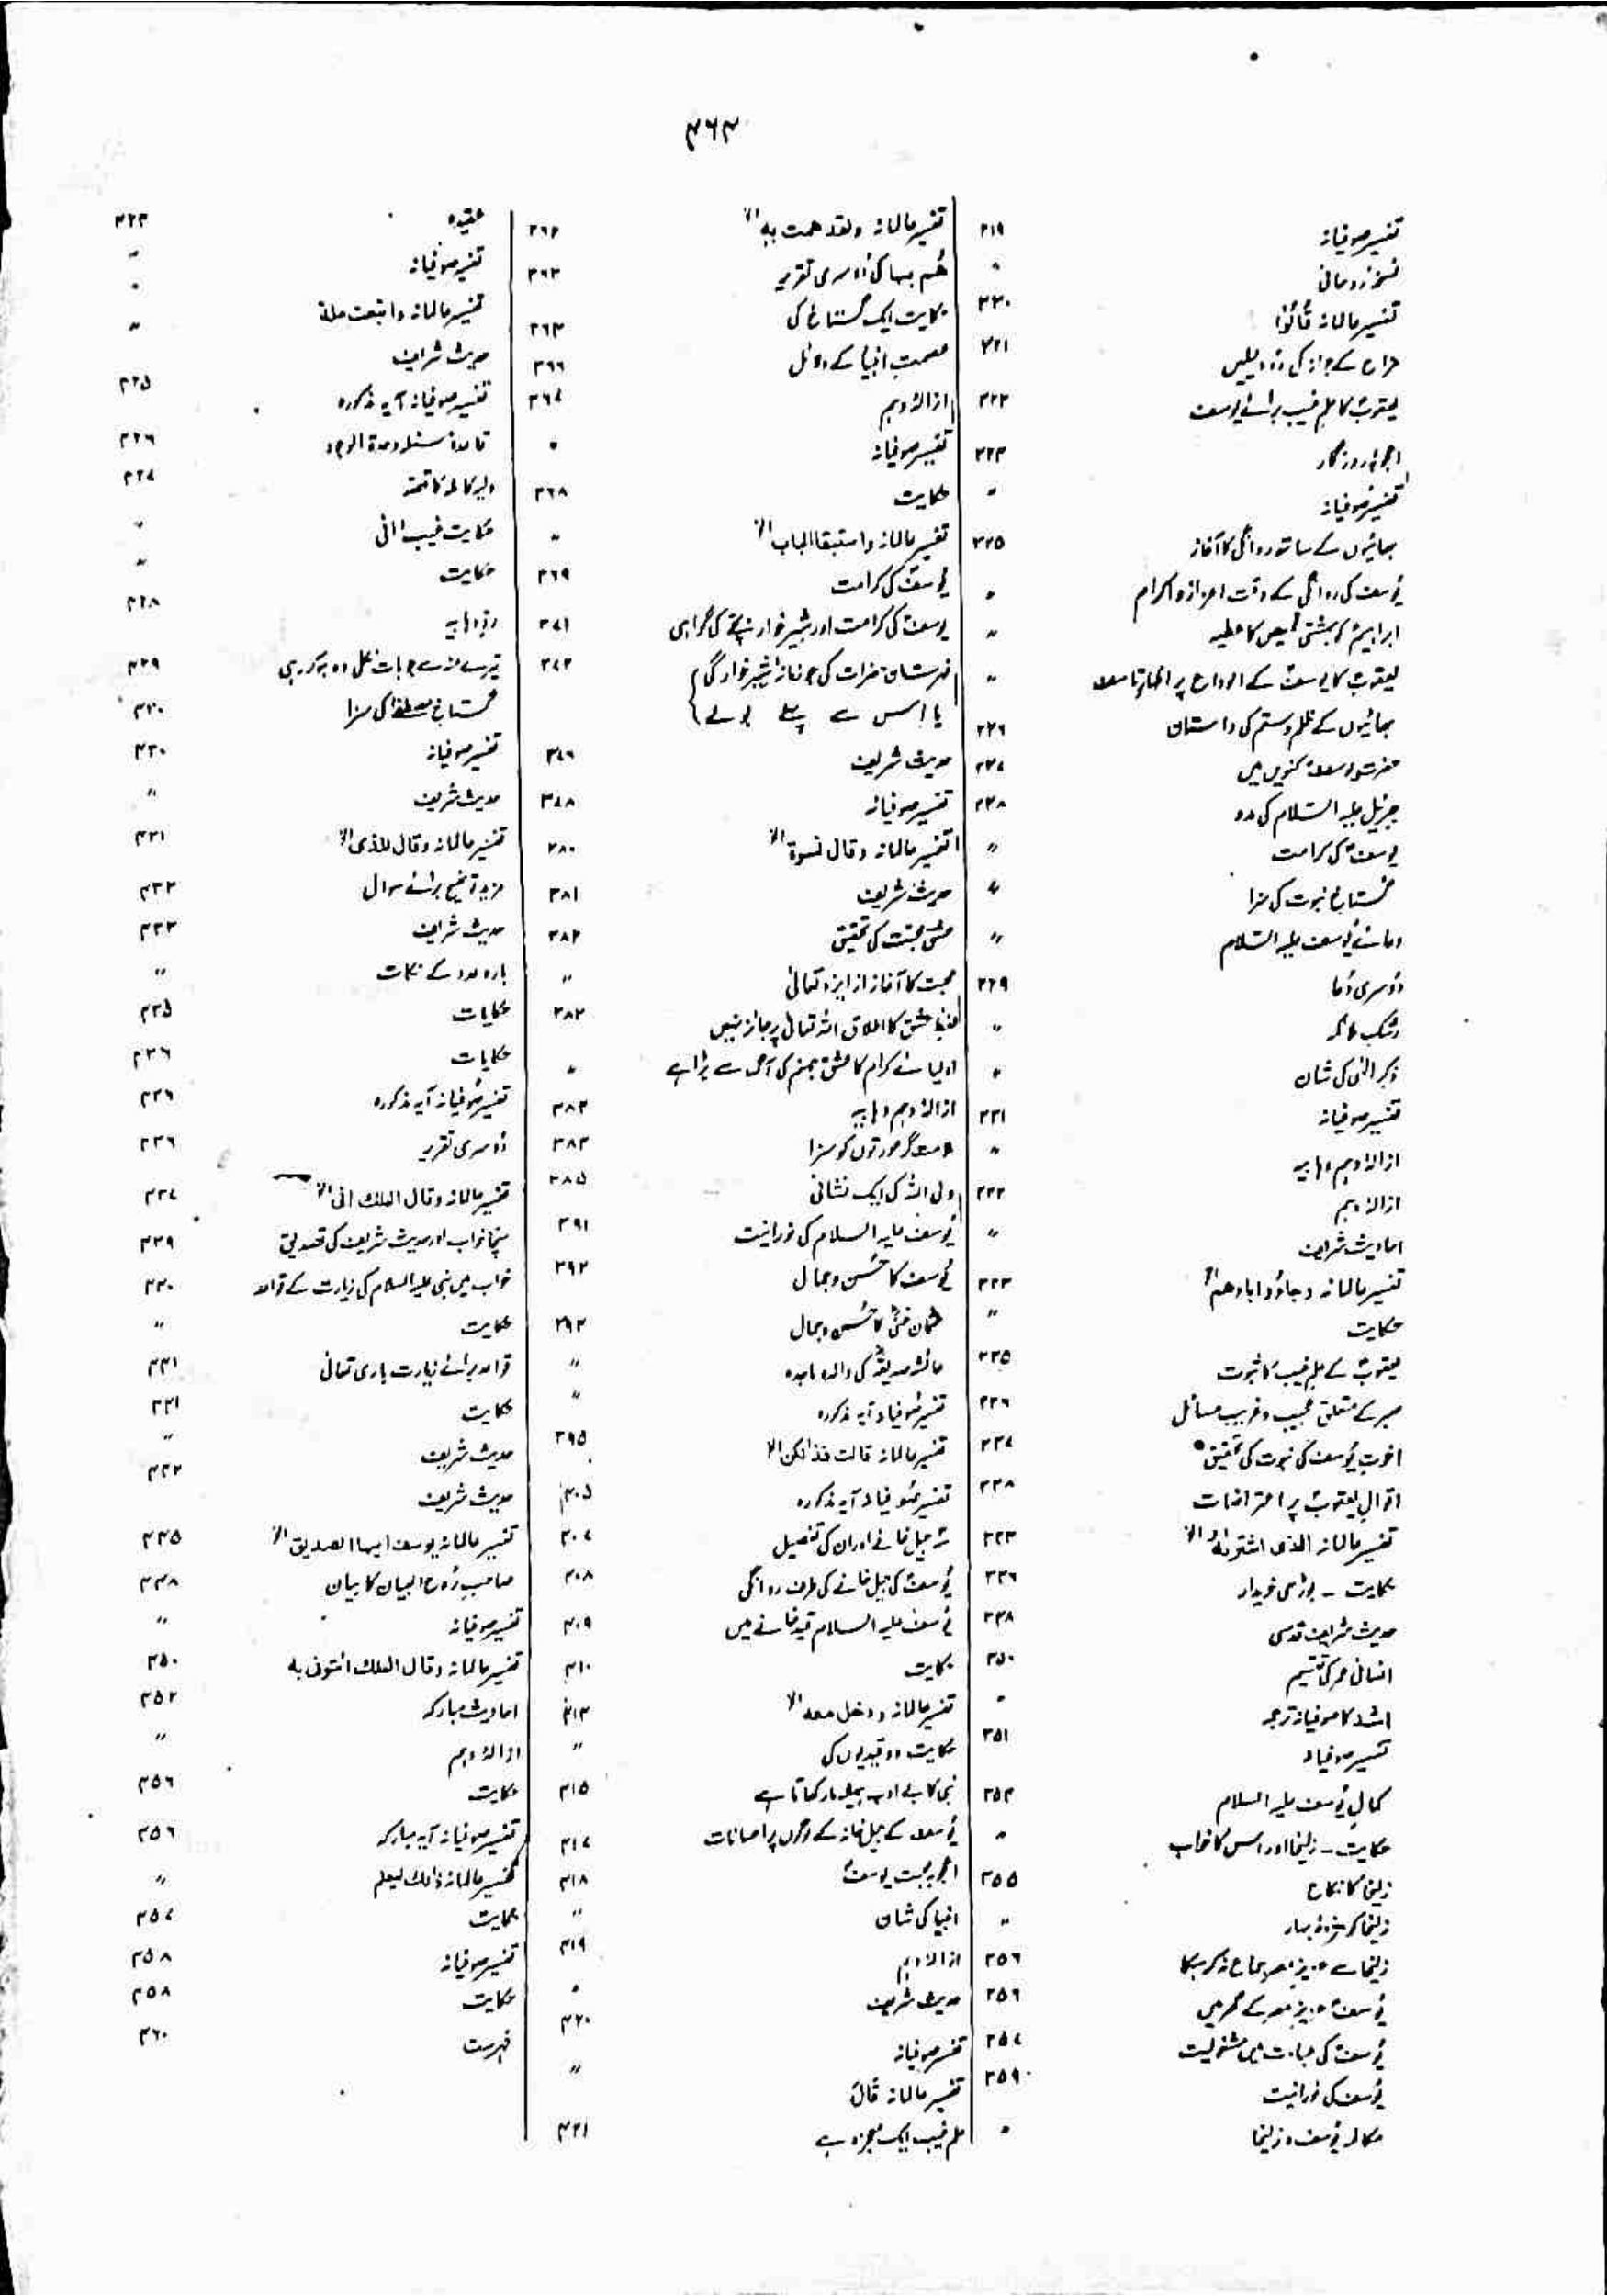 ۴۶۳
تفسیر صوفیانہ ۳۱۹
نسخہ روحانی "
تفسیر عالمانہ قَالُوْا ۳۲۰
مزاح کے جواز کی دو دلیلیں ۳۲۱
یعقوبؑ کا علم غیب برائے یوسفؑ ۳۲۲
اعجوبہ روزگار ۳۲۳
تفسیر صوفیانہ "
بھائیوں کے ساتھ روانگی کا آغاز ۳۲۵
یوسفؑ کی روانگی کے وقت اعزاز و اکرام "
ابراہیمؑ کو بہشتی قمیص کا عطیہ "
یعقوبؑ کا یوسفؑ کے الوداع پر اظہارِ تاسف "
بھائیوں کے ظلم و ستم کی داستان ۳۲۶
حضرت یوسفؑ کنویں میں ۳۲۷
جبریل علیہ السلام کی مدد ۳۲۸
یوسفؑ کی کرامت "
گستاخِ نبوت کی سزا "
دعائے یوسف علیہ السلام "
دوسری دُعا ۳۲۹
رشک ملائکہ "
ذکر الٰہی کی شان "
تفسیر صوفیانہ ۳۳۱
ازالۂ وہم وہابیہ "
ازالۂ وہم ۳۳۲
احادیث شریف "
تفسیر عالمانہ وجاؤوا اباھم الخ ۳۳۳
حکایت "
یعقوبؑ کے علم غیب کا ثبوت ۳۳۵
صبر کے متعلق عجیب و غریب مسائل ۳۳۶
اخوتِ یوسفؑ کی نبوت کی تحقیق ۳۳۷
اقوالِ یعقوبؑ پر اعتراضات ۳۳۸
تفسیر عالمانہ الذی اشتراہ الخ ۳۴۴
حکایت - بوڑھی خریدار ۳۴۶
حدیث شریف قدسی ۳۴۸
انسانی عمر کی تقسیم ۳۵۰
اشد کا صوفیانہ ترجمہ "
تفسیر صوفیانہ ۳۵۱
کمالِ یوسف علیہ السلام ۳۵۴
حکایت - زلیخا اور اس کا خواب "
زلیخا کا نکاح ۳۵۵
زلیخا کو مژدۂ بہار "
زلیخا سے عزیزِ مصر جماع نہ کر سکا ۳۵۶
یوسفؑ عزیزِ مصر کے گھر میں ۳۵۶
یوسفؑ کی عبادت میں مشغولیت ۳۵۷
یوسفؑ کی نورانیت ۳۵۹
مکالمہ یوسفؑ و زلیخا "
تفسیر عالمانہ ولقد ھمت بہٖ الخ ۳۶۲
ھُم بہا کی دوسری تقریر ۳۶۳
حکایت ایک گستاخ کی ۳۶۴
عصمتِ انبیاء کے دلائل ۳۶۶
ازالۂ وہم ۳۶۷
تفسیر صوفیانہ "
حکایت ۳۶۸
تفسیر عالمانہ واستبقا الباب الخ "
یوسفؑ کی کرامت ۳۶۹
یوسفؑ کی کرامت اور شیر خوار بچے کی گواہی ۳۷۱
فہرست ان حضرات کی جو زمانۂ شیر خوارگی ۳۷۲
یا اس سے پہلے بولے
حدیث شریف ۳۷۶
تفسیر صوفیانہ ۳۷۸
تفسیر عالمانہ وقال نسوۃ الخ ۳۸۰
حدیث شریف ۳۸۱
عشق محبت کی تحقیق ۳۸۲
محبت کا آغاز از ایزد تعالیٰ "
لفظِ عشق کا اطلاق اللہ تعالیٰ پر جائز نہیں ۳۸۳
اولیائے کرام کا عشق جہنم کی آگ سے بڑا ہے "
ازالۂ وہم وہابیہ ۳۸۴
ملامت گر عورتوں کو سزا ۳۸۴
ولی اللہ کی ایک نشانی ۳۸۵
یوسف علیہ السلام کی نورانیت ۳۹۱
یوسفؑ کا حُسن و جمال ۳۹۲
عثمان غنیؓ کا حُسن و جمال ۳۹۳
عائشہ صدیقہؓ کی والدہ ماجدہ "
تفسیر صوفیانہ آیہ مذکورہ "
تفسیر عالمانہ قالت فذالکن الخ ۳۹۵
تفسیر صوفیانہ آیہ مذکورہ ۴۰۵
جیل خانے اور ان کی تفصیل ۴۰۷
یوسفؑ کی جیل خانے کی طرف روانگی ۴۰۸
یوسف علیہ السلام قید خانے میں ۴۰۹
حکایت ۴۱۰
تفسیر عالمانہ ودخل معہ الخ ۴۱۳
حکایت دو قیدیوں کی "
نبی کا بے ادب ہمیشہ مار کھاتا ہے ۴۱۵
یوسفؑ کے جیل خانہ کے لوگوں پر احسانات ۴۱۷
اعجوبہ محبت یوسفؑ ۴۱۸
انبیاء کی شان "
ازالۂ وہم ۴۱۹
حدیث شریف "
تفسیر صوفیانہ ۴۲۰
تفسیر عالمانہ قَالَ "
علم غیب ایک معجزہ ہے ۴۲۱
عقیدہ ۴۲۳
تفسیر صوفیانہ "
تفسیر عالمانہ واتبعت ملۃ "
حدیث شریف "
تفسیر صوفیانہ آیہ مذکورہ ۴۲۵
قاعدۂ مسئلہ وحدۃ الوجود ۴۲۶
۴۲۷
حکایت غیب دانی "
حکایت "
ردِّ وہابیہ ۴۲۸
تیرے منہ سے جو بات نکلی وہ ہو کر رہی ۴۲۹
گستاخِ مصطفیٰ کی سزا ۴۳۰
تفسیر صوفیانہ ۴۳۰
حدیث شریف "
تفسیر عالمانہ وقال للذی الخ ۴۳۱
مزید توضیح برائے سوال ۴۳۲
حدیث شریف ۴۳۳
بارہ عدد کے نکات "
حکایات ۴۳۵
حکایات ۴۳۶
تفسیر صوفیانہ آیہ مذکورہ ۴۳۶
دوسری تقریر ۴۳۶
تفسیر عالمانہ وقال الملک انی الخ ۴۳۷
سچا خواب اور حدیث شریف کی تصدیق ۴۳۹
خواب میں نبی علیہ السلام کی زیارت کے قواعد ۴۴۰
حکایت "
قواعد برائے زیارت باری تعالیٰ ۴۴۱
حکایت ۴۴۱
حدیث شریف "
حدیث شریف ۴۴۲
تفسیر عالمانہ یوسف ایہا الصدیق الخ ۴۴۵
صاحبِ رُوح البیان کا بیان ۴۴۸
تفسیر صوفیانہ "
تفسیر عالمانہ وقال الملک ائتونی بہ ۴۵۰
احادیث مبارکہ ۴۵۲
ازالۂ وہم "
حکایت ۴۵۶
تفسیر صوفیانہ آیہ مبارکہ ۴۵۶
تفسیر عالمانہ ذالک لیعلم "
حکایت ۴۵۷
تفسیر صوفیانہ ۴۵۸
حکایت ۴۵۸
فہرست ۴۶۰